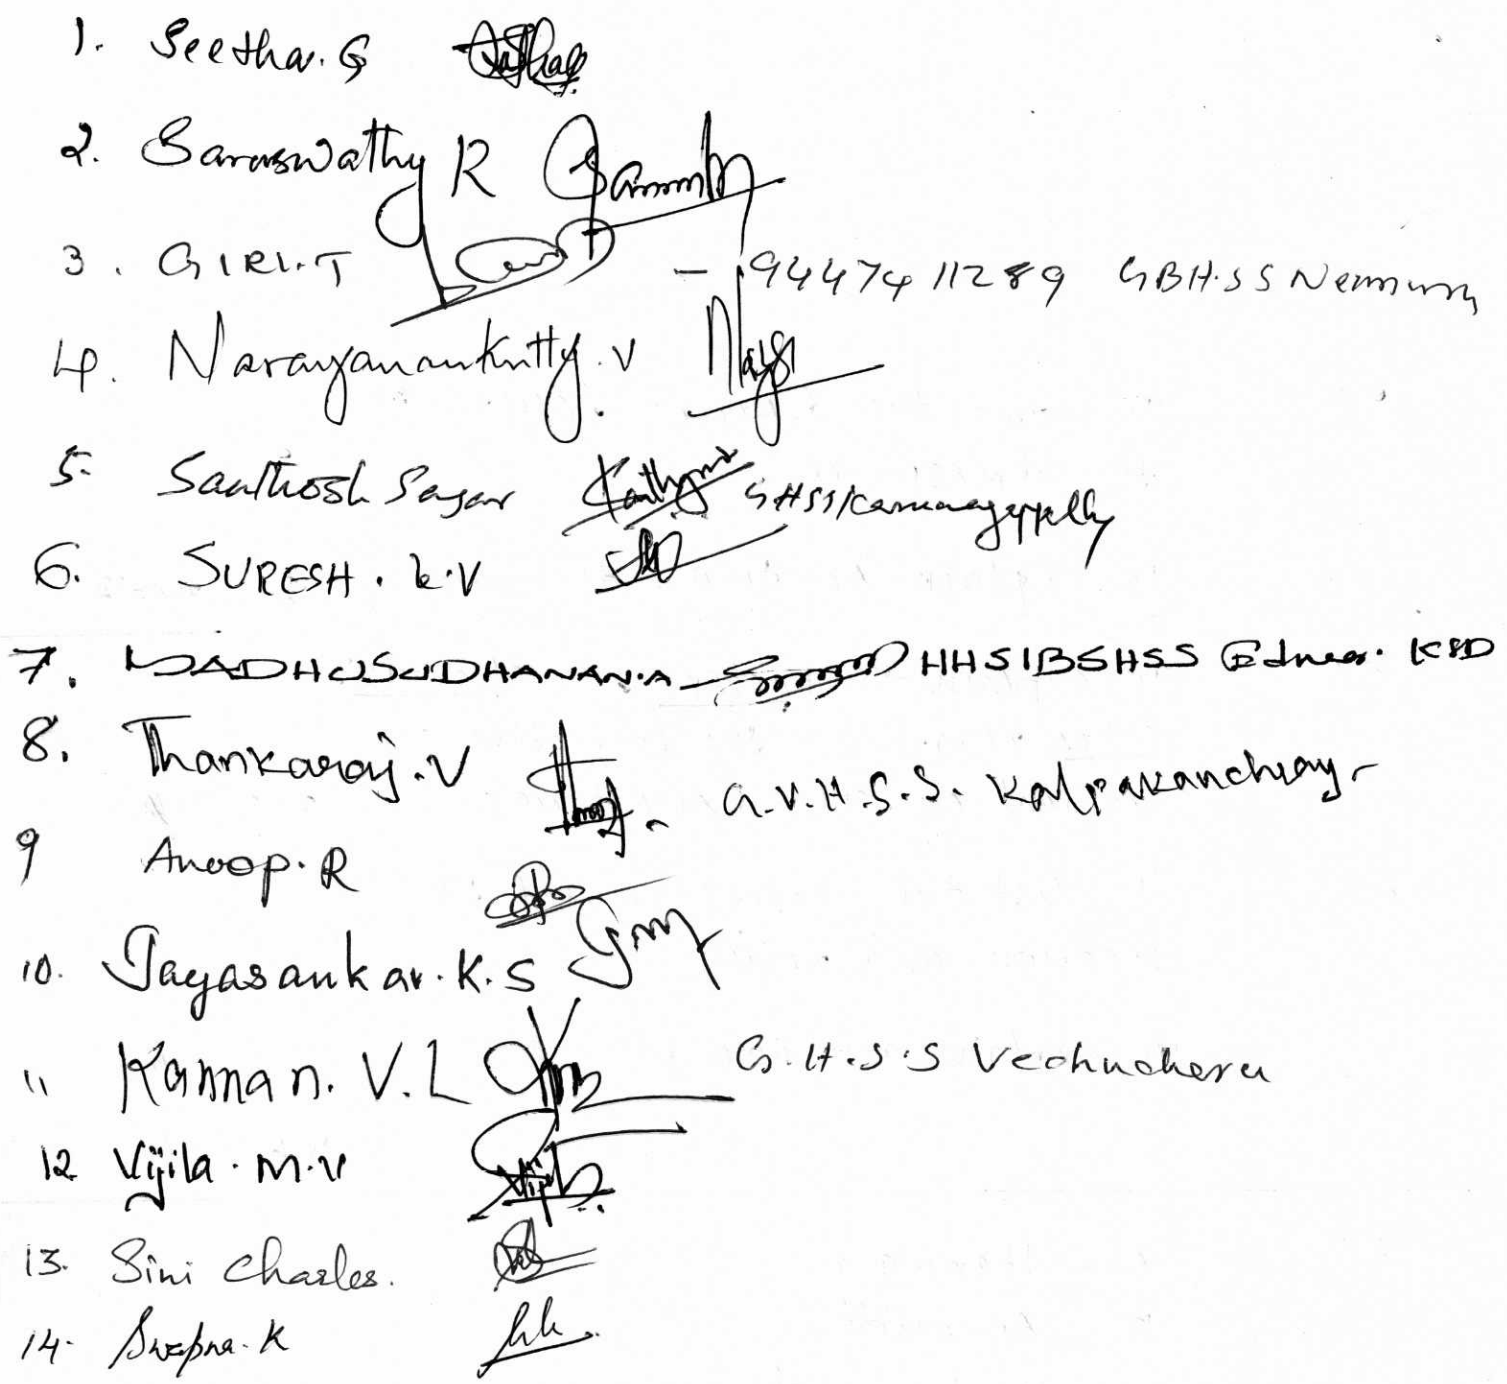 1. Seetha. G
2. Saraswathy R
3. GIRI.T - 9447411289 GBH.SS
4. Narayanankutty. V
5. Santhosh Sagar GHSS Karunagappally
6. SURESH. K.V
7. MADHUSUDHANAN.A HHSIBSHSS Edneer. KSD
8. Thankaraj.V G.V.H.S.S. Kalpakanchery
9 Anoop. R
10. Jayasankar. K. S
11 Kannan. V. L G.H.S.S Vechuchera
12 Vijila. M.V
13. Sini Charles.
14. Swapna. K